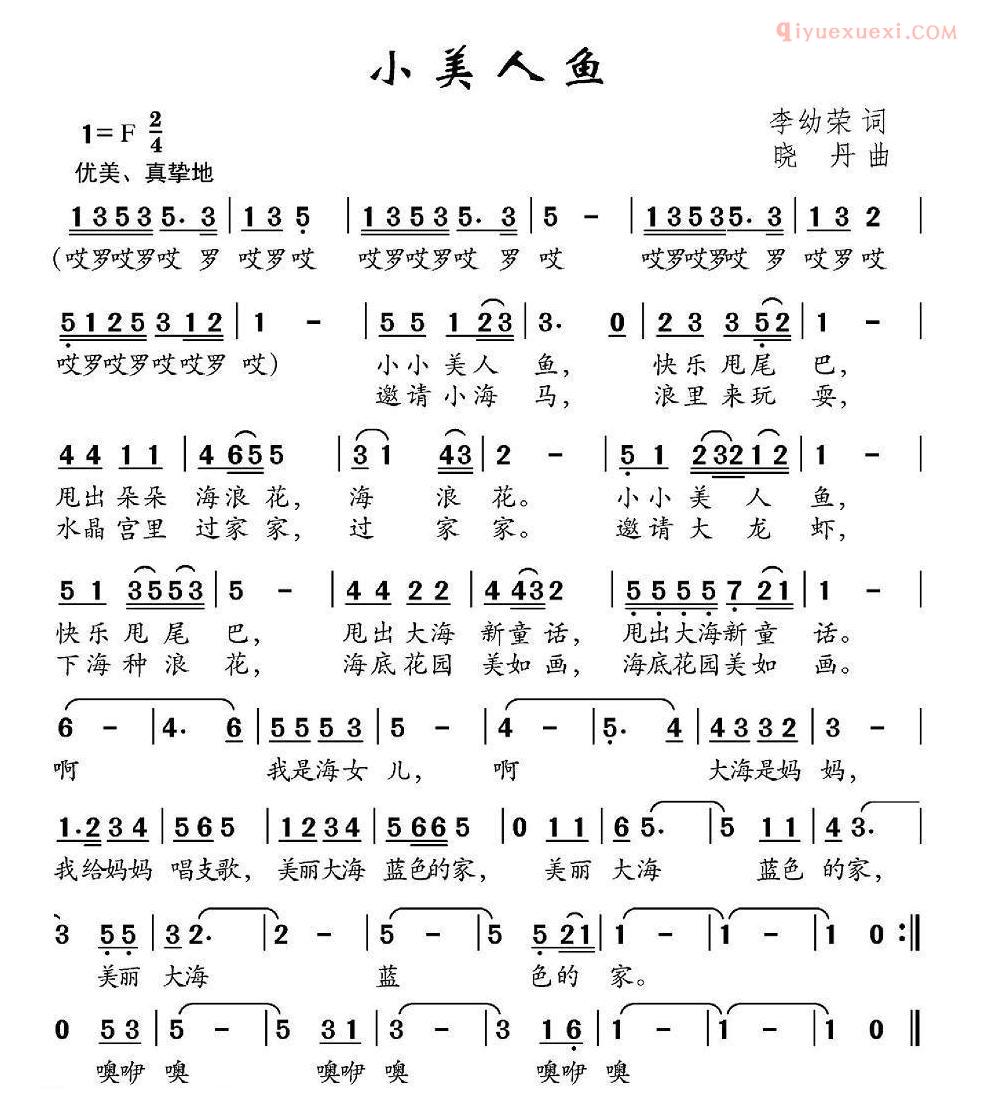 qiyuexuexi.COM
小美人鱼
1=F 2/4
李幼荣 词
优美、真挚地
晓 丹 曲
1 3 5 3 5. 3 | 1 3 5 | 1 3 5 3 5. 3 | 5 - | 1 3 5 3 5. 3 | 1 3 2 |
(哎罗哎罗哎 罗 哎罗哎 哎罗哎罗哎 罗 哎 哎罗哎罗哎 罗 哎罗哎
5 1 2 5 3 1 2 | 1 - | 5 5 1 2 3 | 3. 0 | 2 3 3 5 2 | 1 - |
哎罗哎罗哎哎罗 哎) 小小美人 鱼, 快乐甩尾 巴,
邀请小海 马, 浪里来玩 耍,
4 4 1 1 | 4 6 5 5 | 3 1 4 3 | 2 - | 5 1 2 3 2 1 2 | 1 - |
甩出朵朵 海浪花, 海 浪 花。 小小美 人 鱼,
水晶宫里 过家家, 过 家 家。 邀请大 龙 虾,
5 1 3 5 5 3 | 5 - | 4 4 2 2 | 4 4 3 2 | 5 5 5 5 7 2 1 | 1 - |
快乐甩尾 巴, 甩出大海 新童话, 甩出大海新童 话。
下海种浪 花, 海底花园 美如画, 海底花园美如 画。
6 - | 4. 6 | 5 5 5 3 | 5 - | 4 - | 5. 4 | 4 3 3 2 | 3 - |
啊 我是海女 儿, 啊 大海是妈 妈,
1. 2 3 4 | 5 6 5 | 1 2 3 4 | 5 6 6 5 | 0 1 1 | 6 5. | 5 1 1 | 4 3. |
我给妈妈 唱支歌, 美丽大海 蓝色的家, 美丽 大海 蓝色 的家,
3 5 5 | 3 2. | 2 - | 5 - | 5 5 2 1 | 1 - | 1 - | 1 0 :||
美丽 大海 蓝 色的 家。
0 5 3 | 5 - | 5 3 1 | 3 - | 3 1 6 | 1 - | 1 - | 1 0 ||
噢咿 噢 噢咿 噢 噢咿 噢